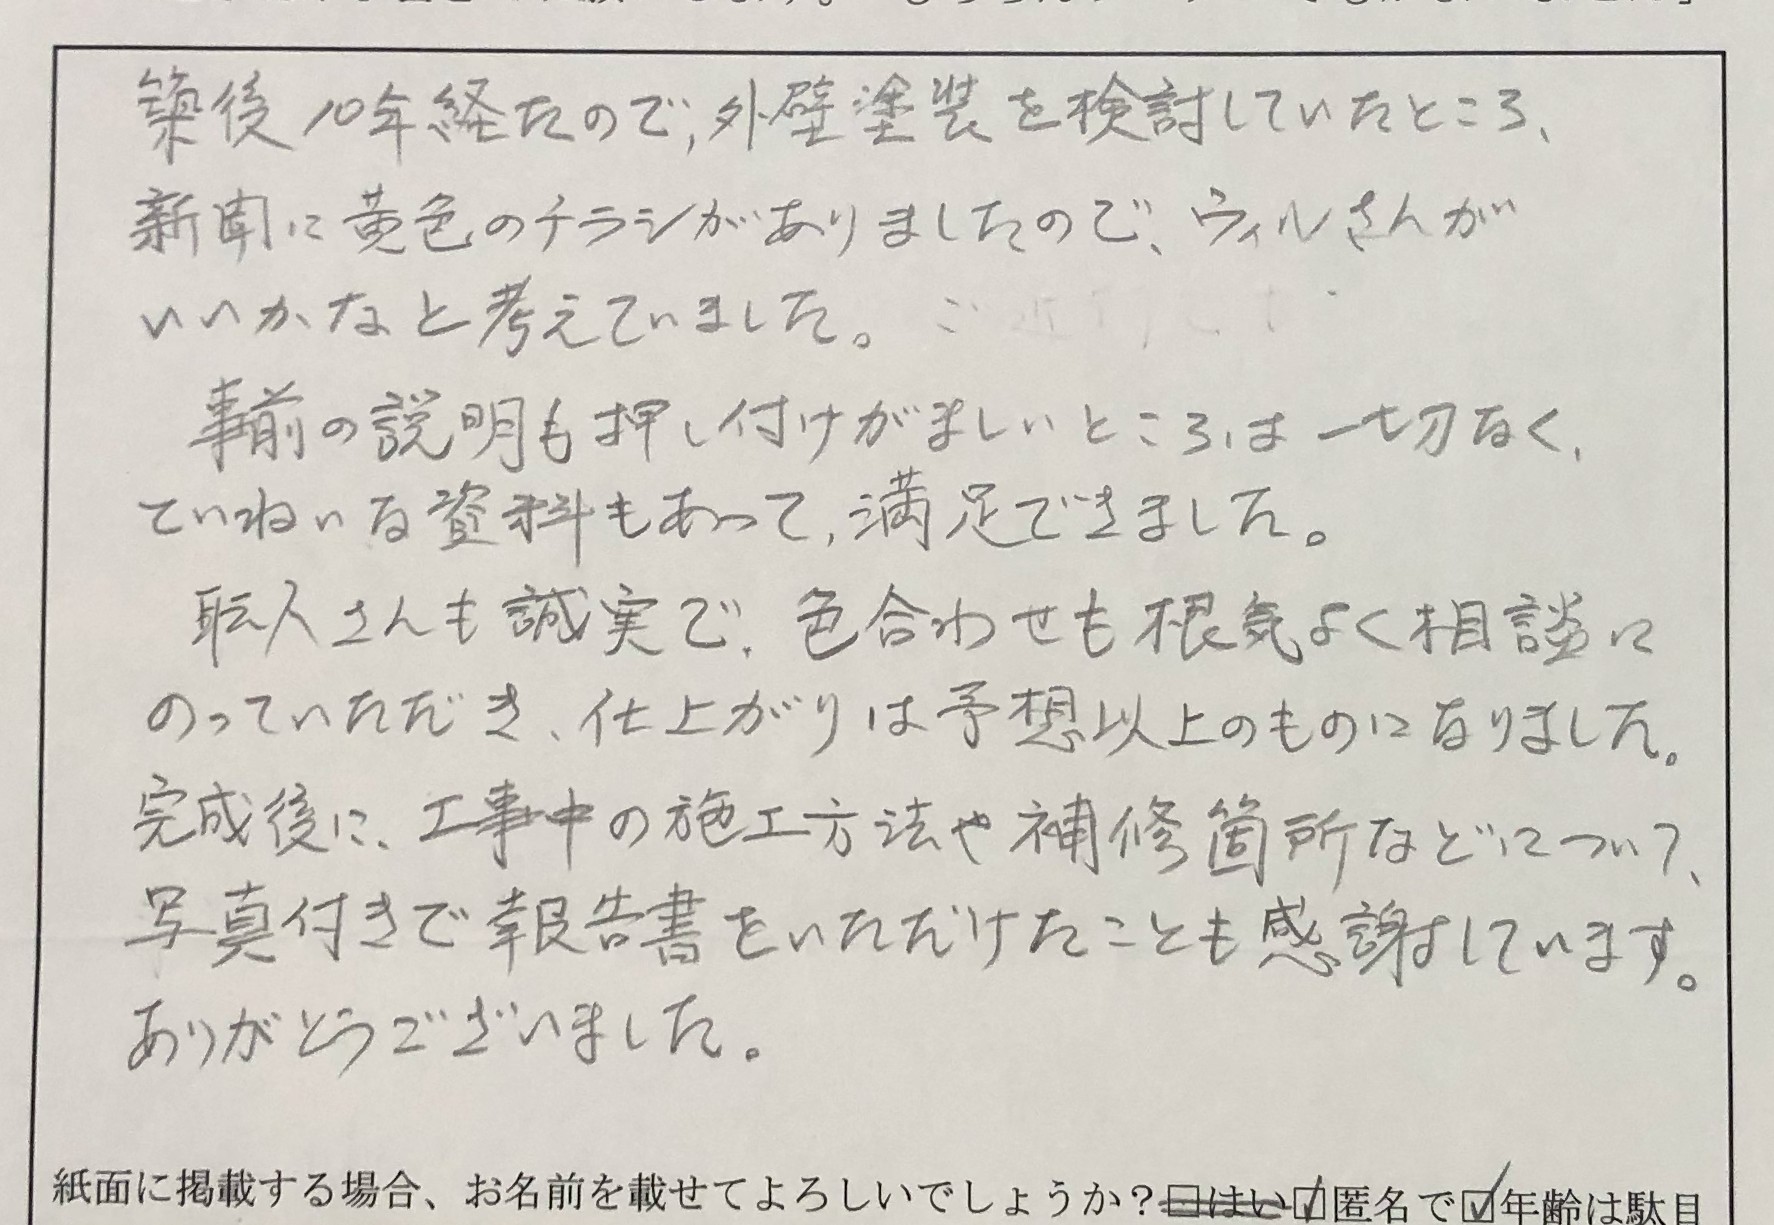 築後10年経たので,外壁塗装を検討していたところ、
新聞に黄色のチラシがありましたので、ウィルさんが
いいかなと考えていました。
事前の説明も押し付けがましいところは一切なく、
ていねいな資料もあって、満足できました。
職人さんも誠実で、色合わせも根気よく相談に
のっていただき、仕上がりは予想以上のものになりました。
完成後に、工事中の施工方法や補修箇所などについて、
写真付きで報告書をいただけたことも感謝しています。
ありがとうございました。
紙面に掲載する場合、お名前を載せてよろしいでしょうか?□はい☑匿名で☑年齢は駄目